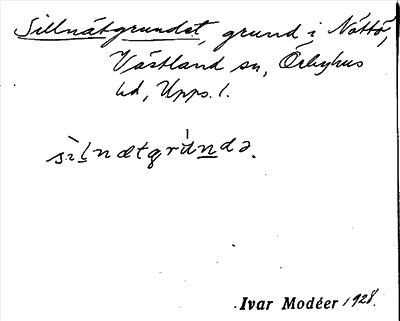 Sillnätgrundet, grund i Nöttö,
Västland sn, Örbyhus
hd, Upps. l.
sìlnætgrúndə.
Ivar Modéer 1928.